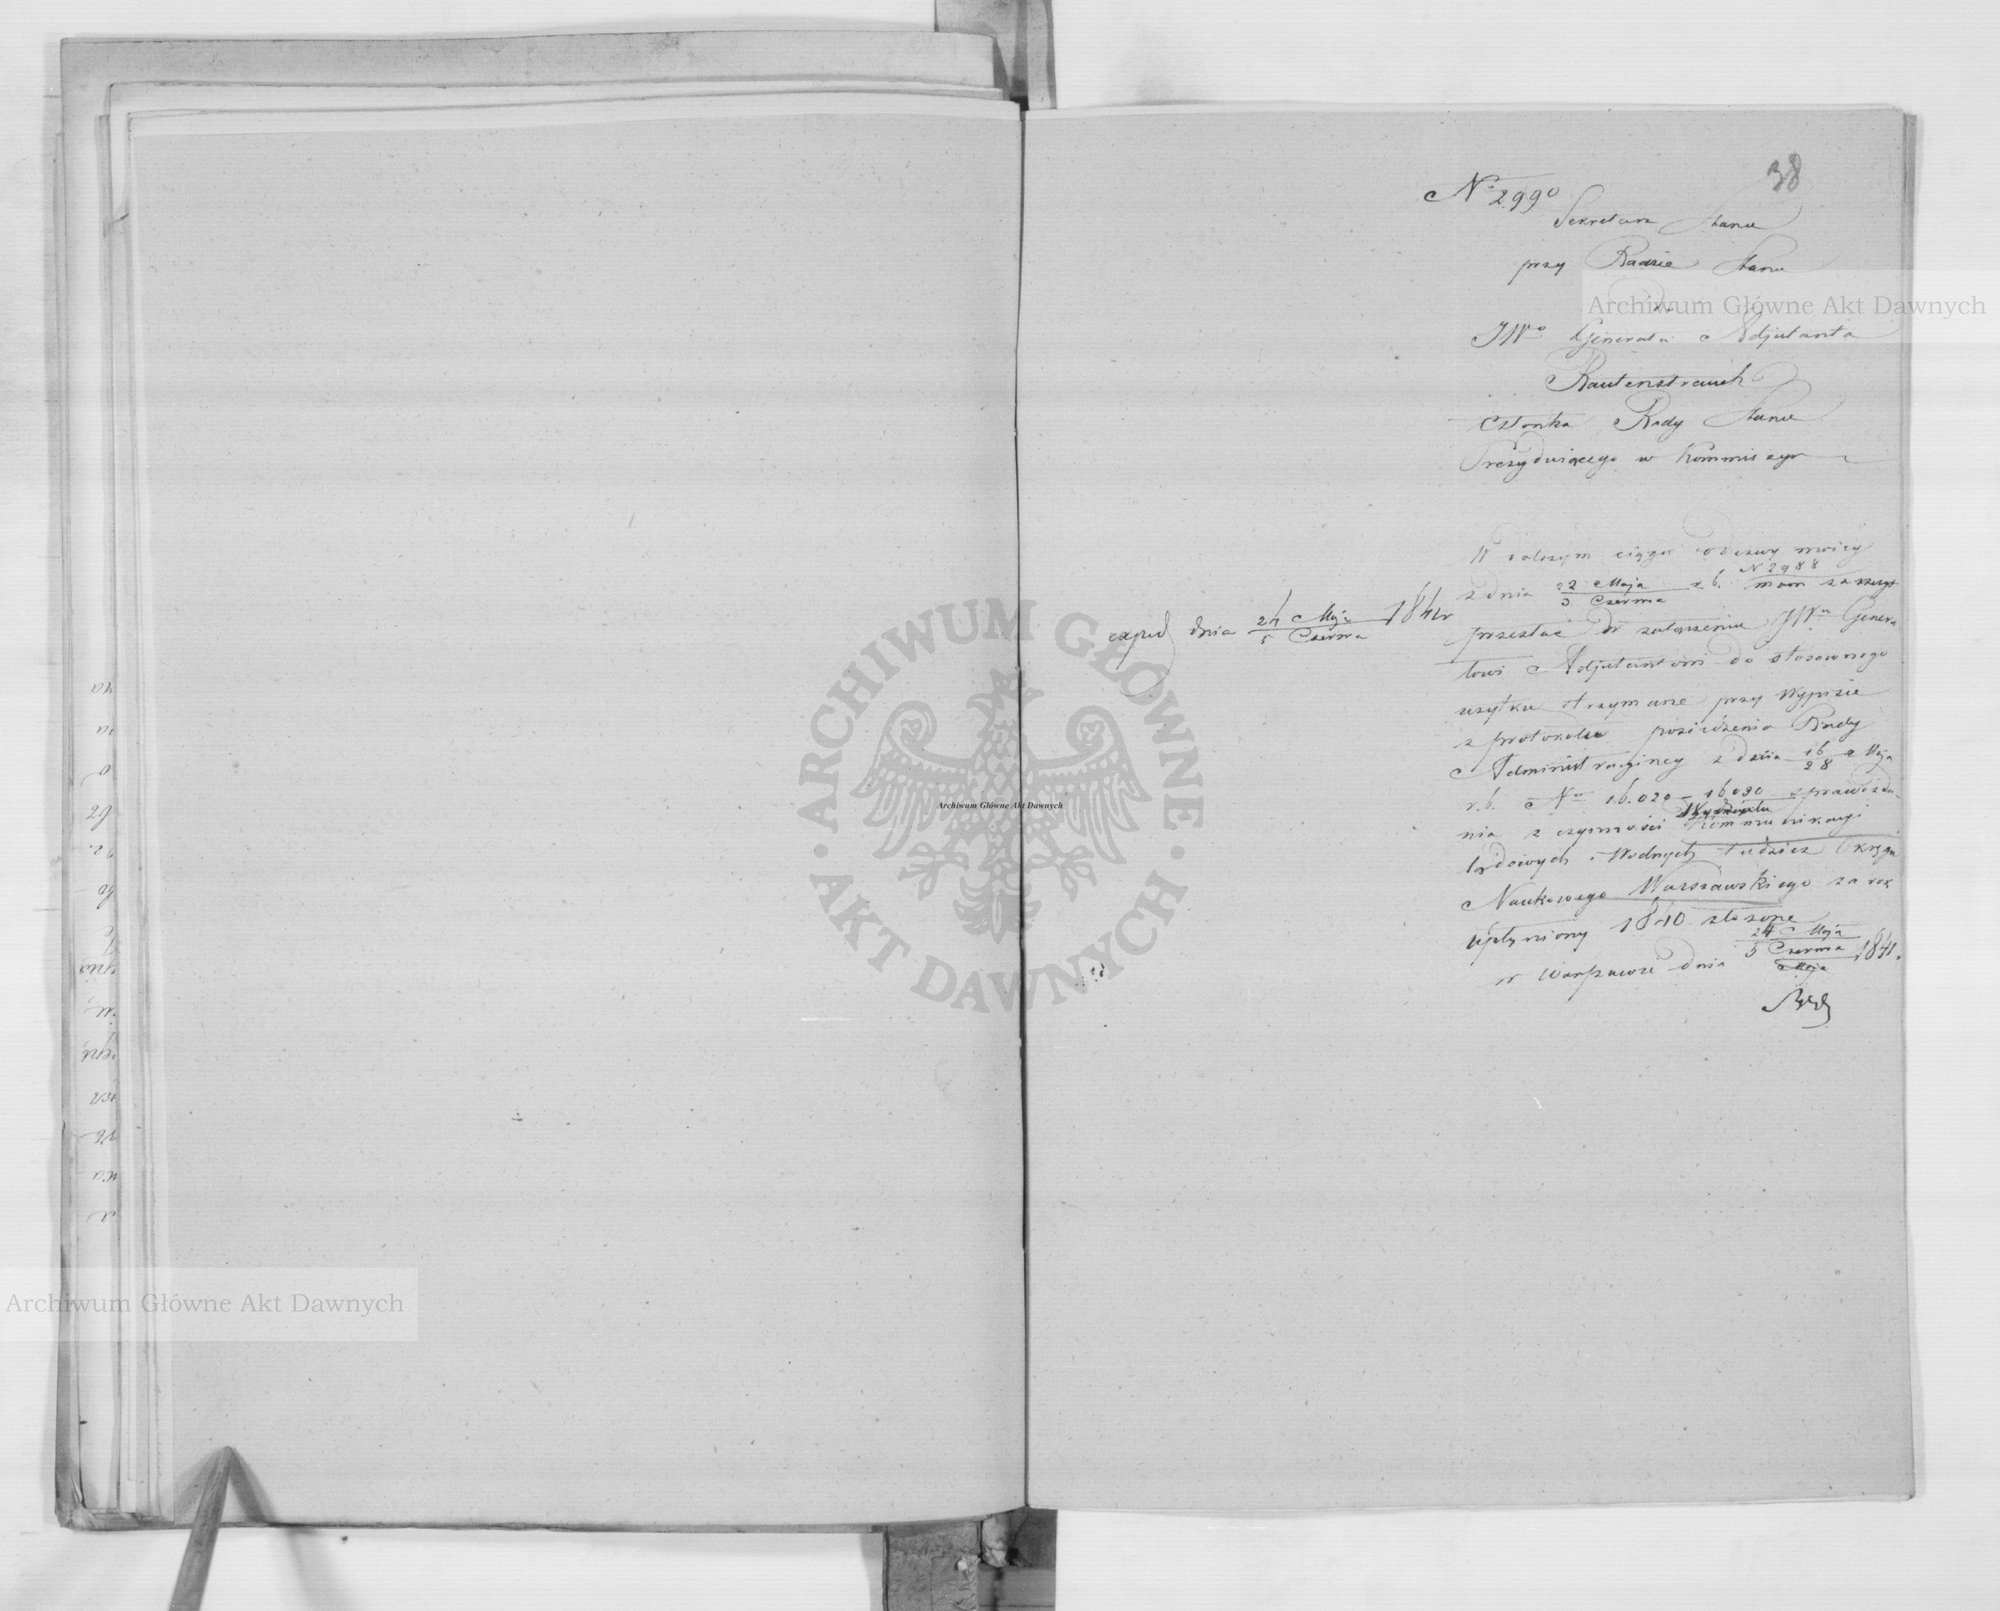 38
No 2990
Sekretarz Stanu
przy Radzie Stanu
Do
JWo Generała Adjutanta
Rautenstrauch
Członka Rady Stanu
Prezydującego w Kommissyi
W dalszym ciągu odezwy moiey
z dnia 22 Maja / 3 Czerwca r. b. N 2988 mam zaszczyt
przesłac w załączeniu JWu Genera
łowi Adjutantowi do stosownego
użytku otrzymane przy wypisie
z protokołu posiedzenia Rady
Administracyiney z dnia 16/28 Maja
r. b. No 16.020 – 16030 sprawozda
nia z czynności Wydziału Kommunikacyi
lądowych i Wodnych tudzież Okręgu
Naukowego Warszawskiego za rok
upłyniony 1840 złożone
w Warszawie dnia 24 Maja / 5 Czerwca 1841.
Maja
exped dnia 24 Maja / 5 Czerwca 1841 r
Archiwum Główne Akt Dawnych
ARCHIWUM GŁÓWNE
· AKT DAWNYCH ·
Archiwum Główne Akt Dawnych
Archiwum Główne Akt Dawnych